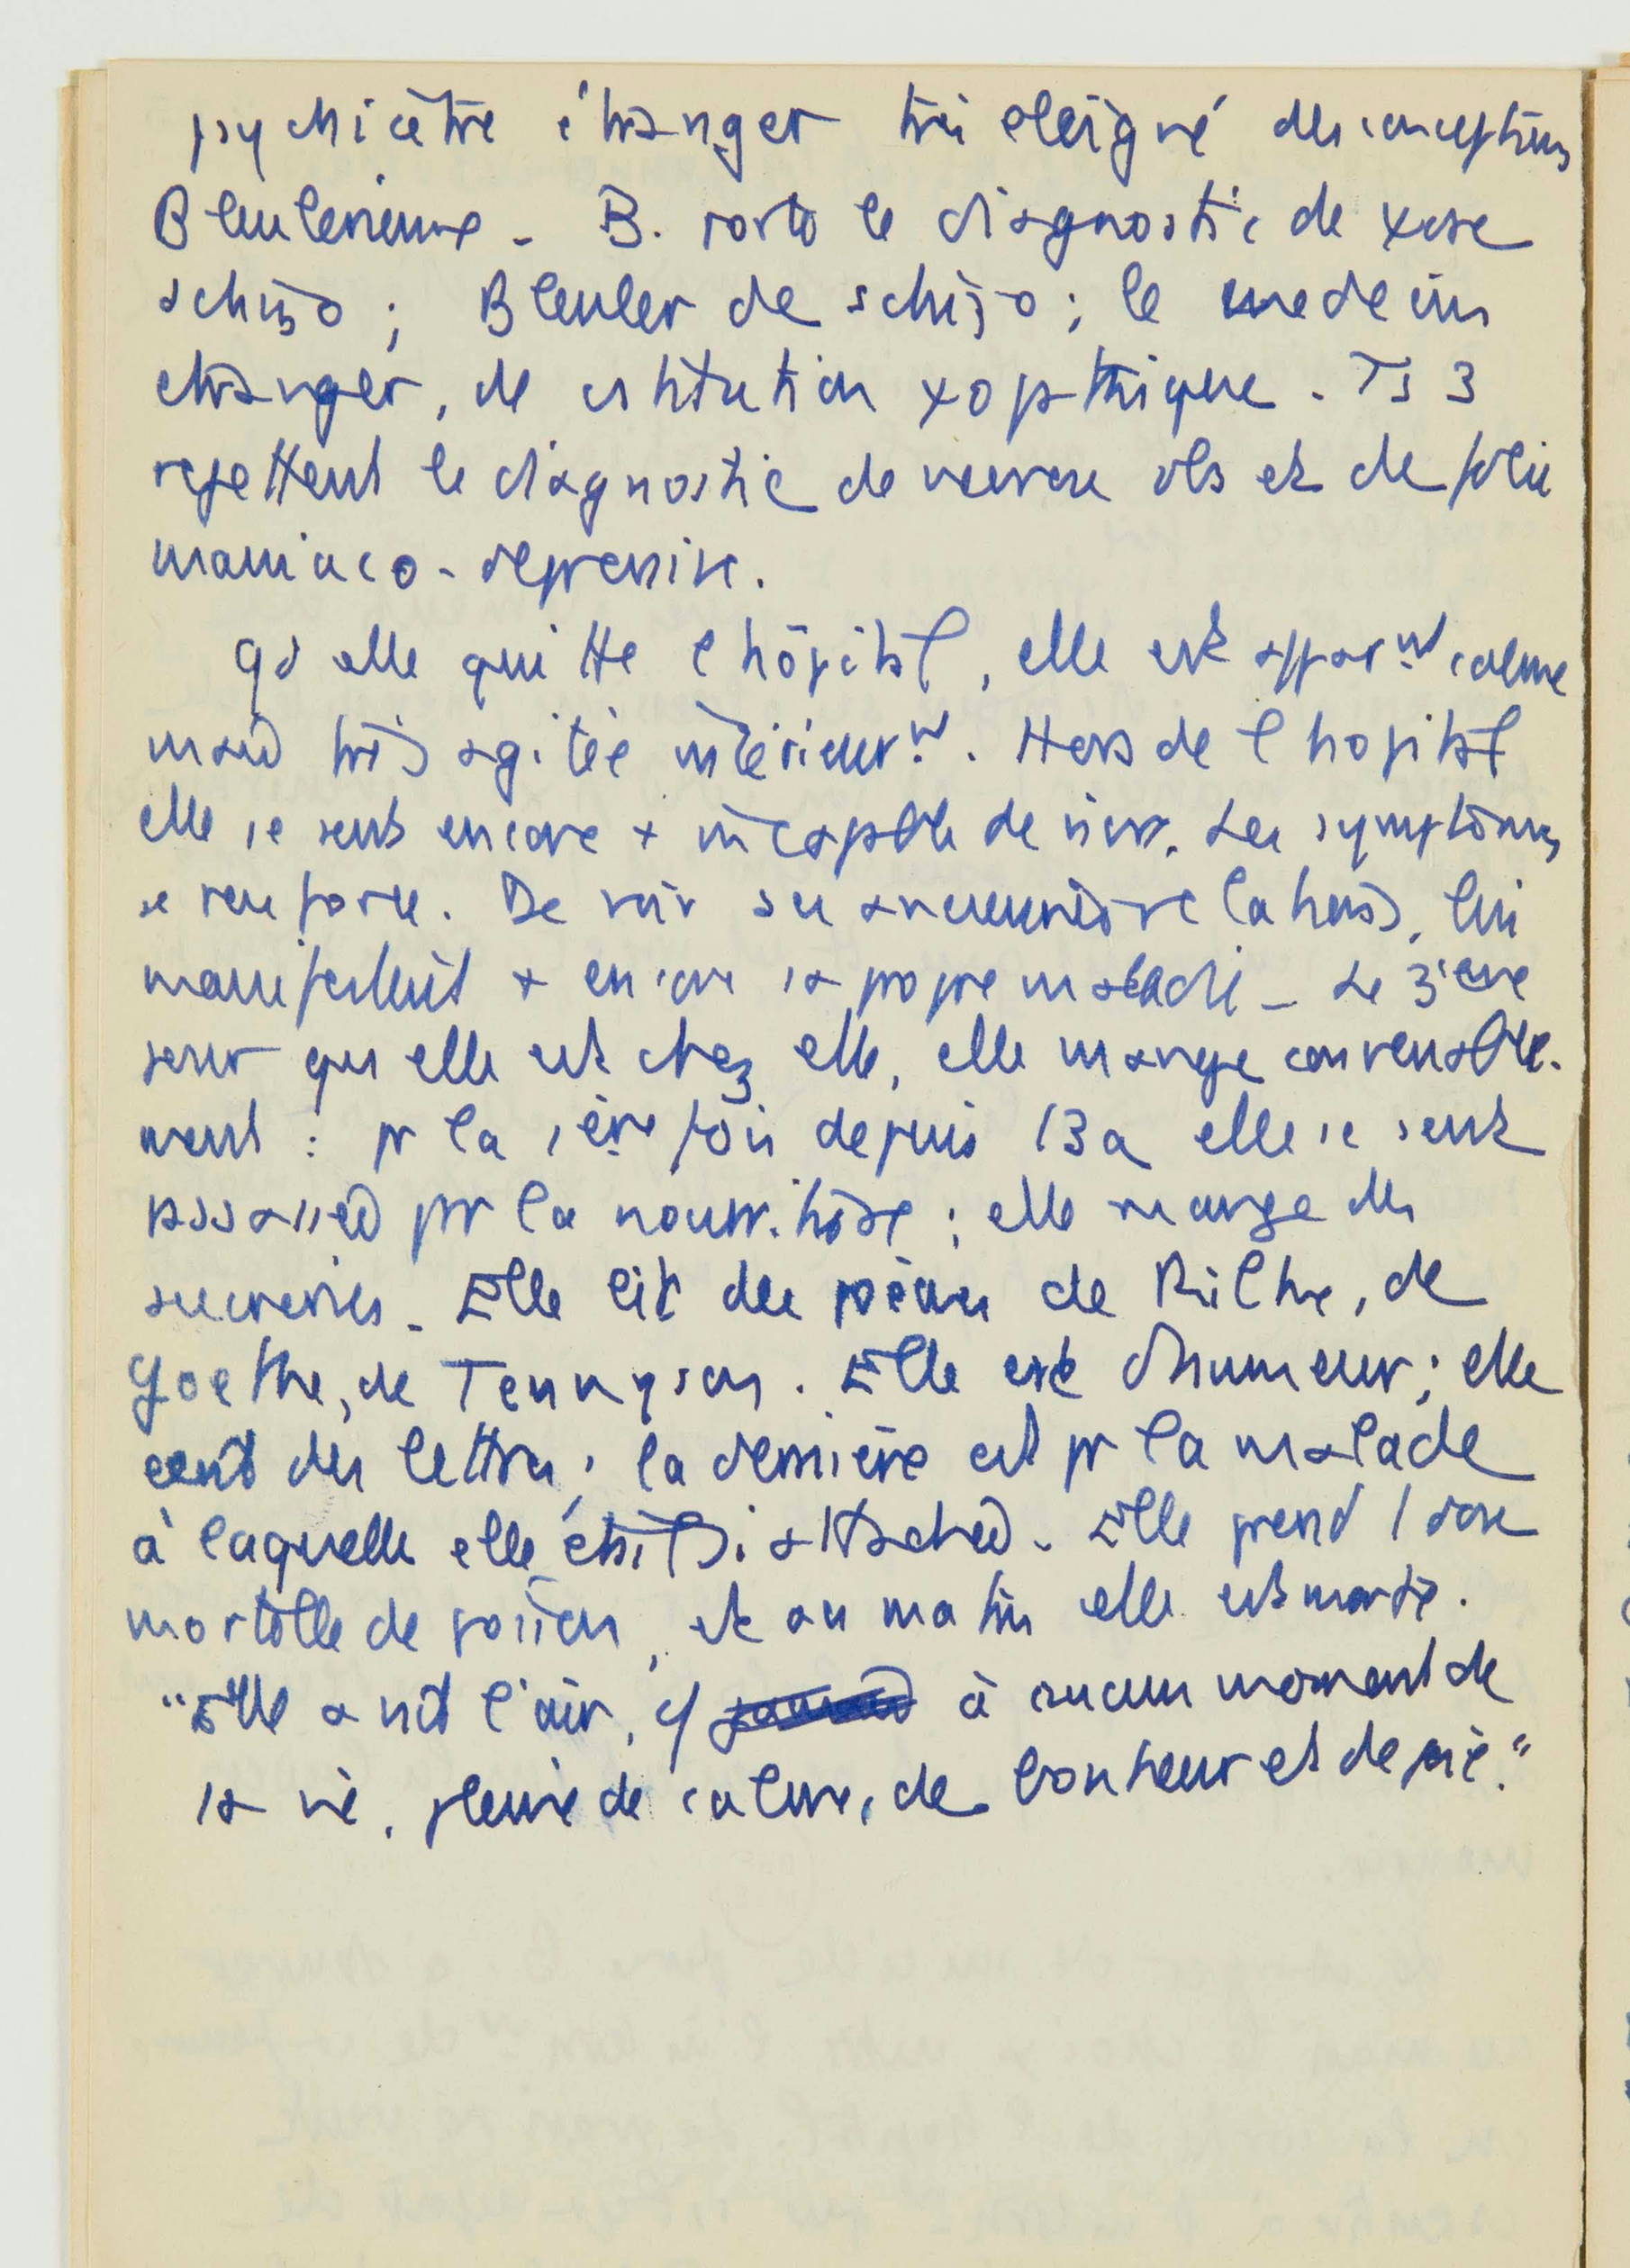 psychiatre étranger très eloigné des conceptions
Bleuleriennes - B. porte le diagnostic de xose
schizo ; Bleuler de schizo ; le medecin
etranger, de cstitution xopathique. Ts 3
rejettent le diagnostic de nevrose obs et de folie
maniaco-depressive.
qd elle quitte l hôpital, elle est apparnt calme
mais très agitée intérieurnt. Hors de l hopital
elle se sent encore + incapable de vivre. Les symptômes
se renforce. De voir ses
manifestent + encore sa propre maladie - Le 3ième
jour qu elle est chez elle, elle mange convenable-
ment : pr la 1ère fois depuis 13 a elle se sent
rassasiée pr la nourriture ; elle mange des
sucreries - Elle lit des poèmes de Rilke, de
Goethe, de Tennyson. Elle est d'humeur ; elle
ecrit des lettres ; la dernière est pr la malade
à laquelle elle était si attachée - Elle prend 1 dose
mortelle de poison, et au matin elle est morte.
"Elle avait l'air, à aucun moment de
sa vie, pleine de calme, de bonheur et de paix."